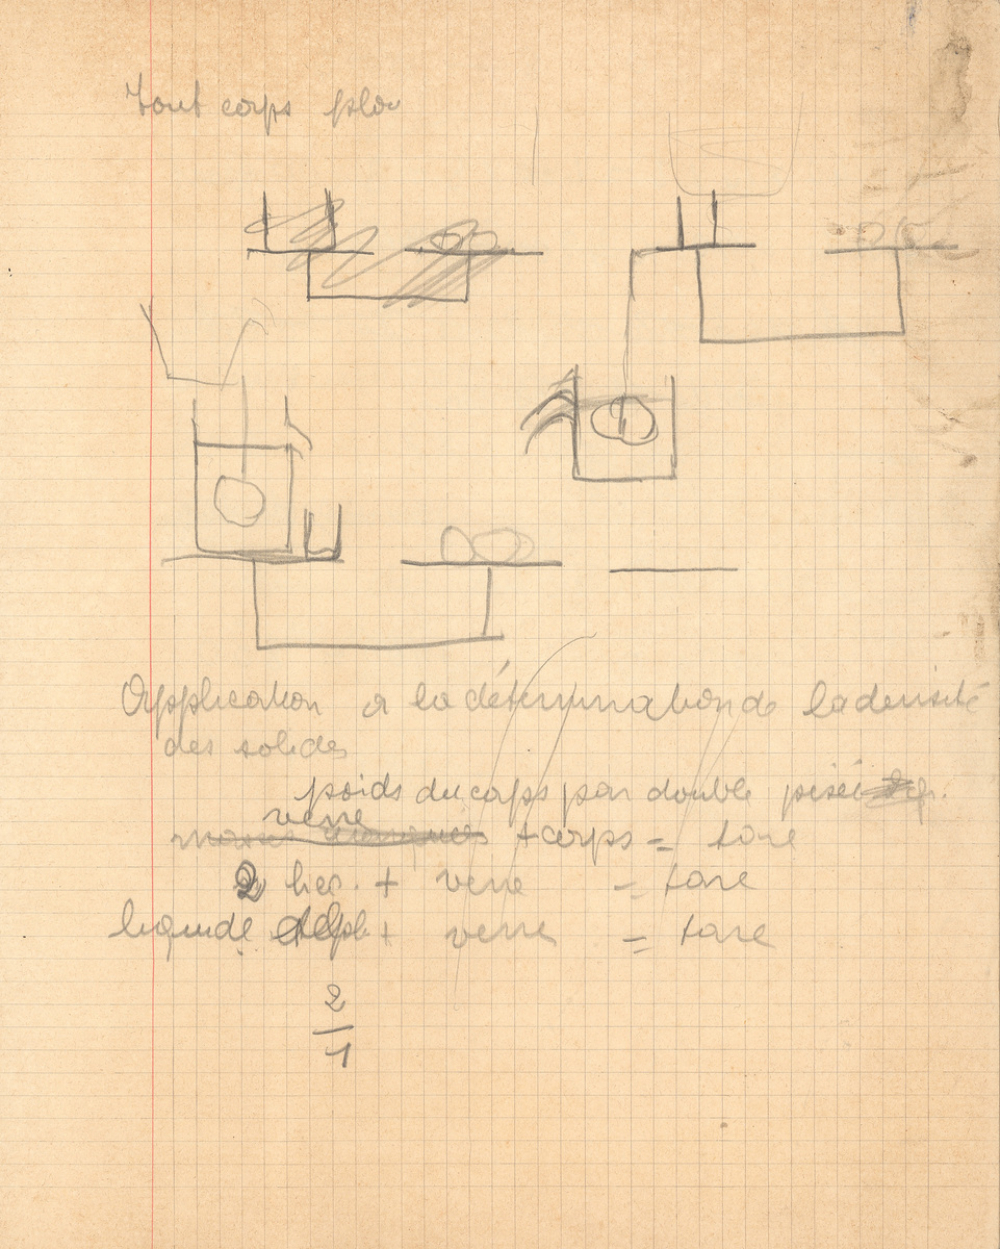 Tout corps plon
Application a la détermination de la densité
des solides
poids du corps par double pesée
verre
+ corps = tare
2 liq. + verre = tare
liquide + verre = tare
2
1